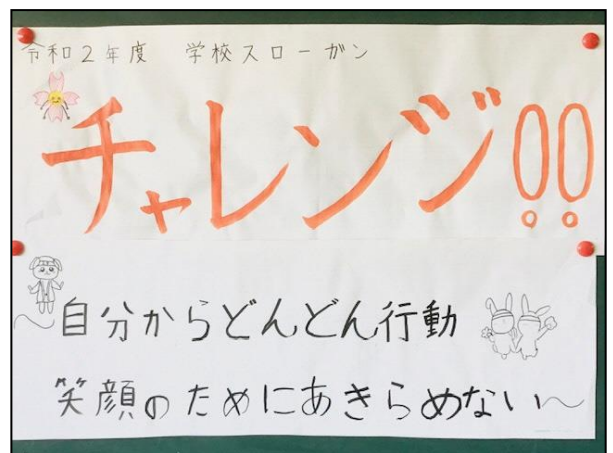 令和2年度 学校スローガン
チャレンジ!!
～自分からどんどん行動
笑顔のためにあきらめない～